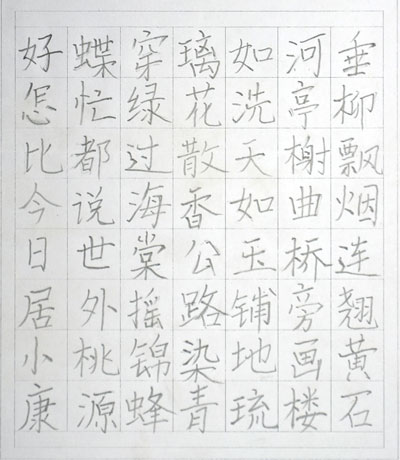 垂柳飘烟连翘黄石
河亭榭曲桥旁画楼
如洗天如玉铺地琉
璃花散香公路染青
穿绿过海棠摇锦蜂
蝶忙都说世外桃源
好怎比今日居小康